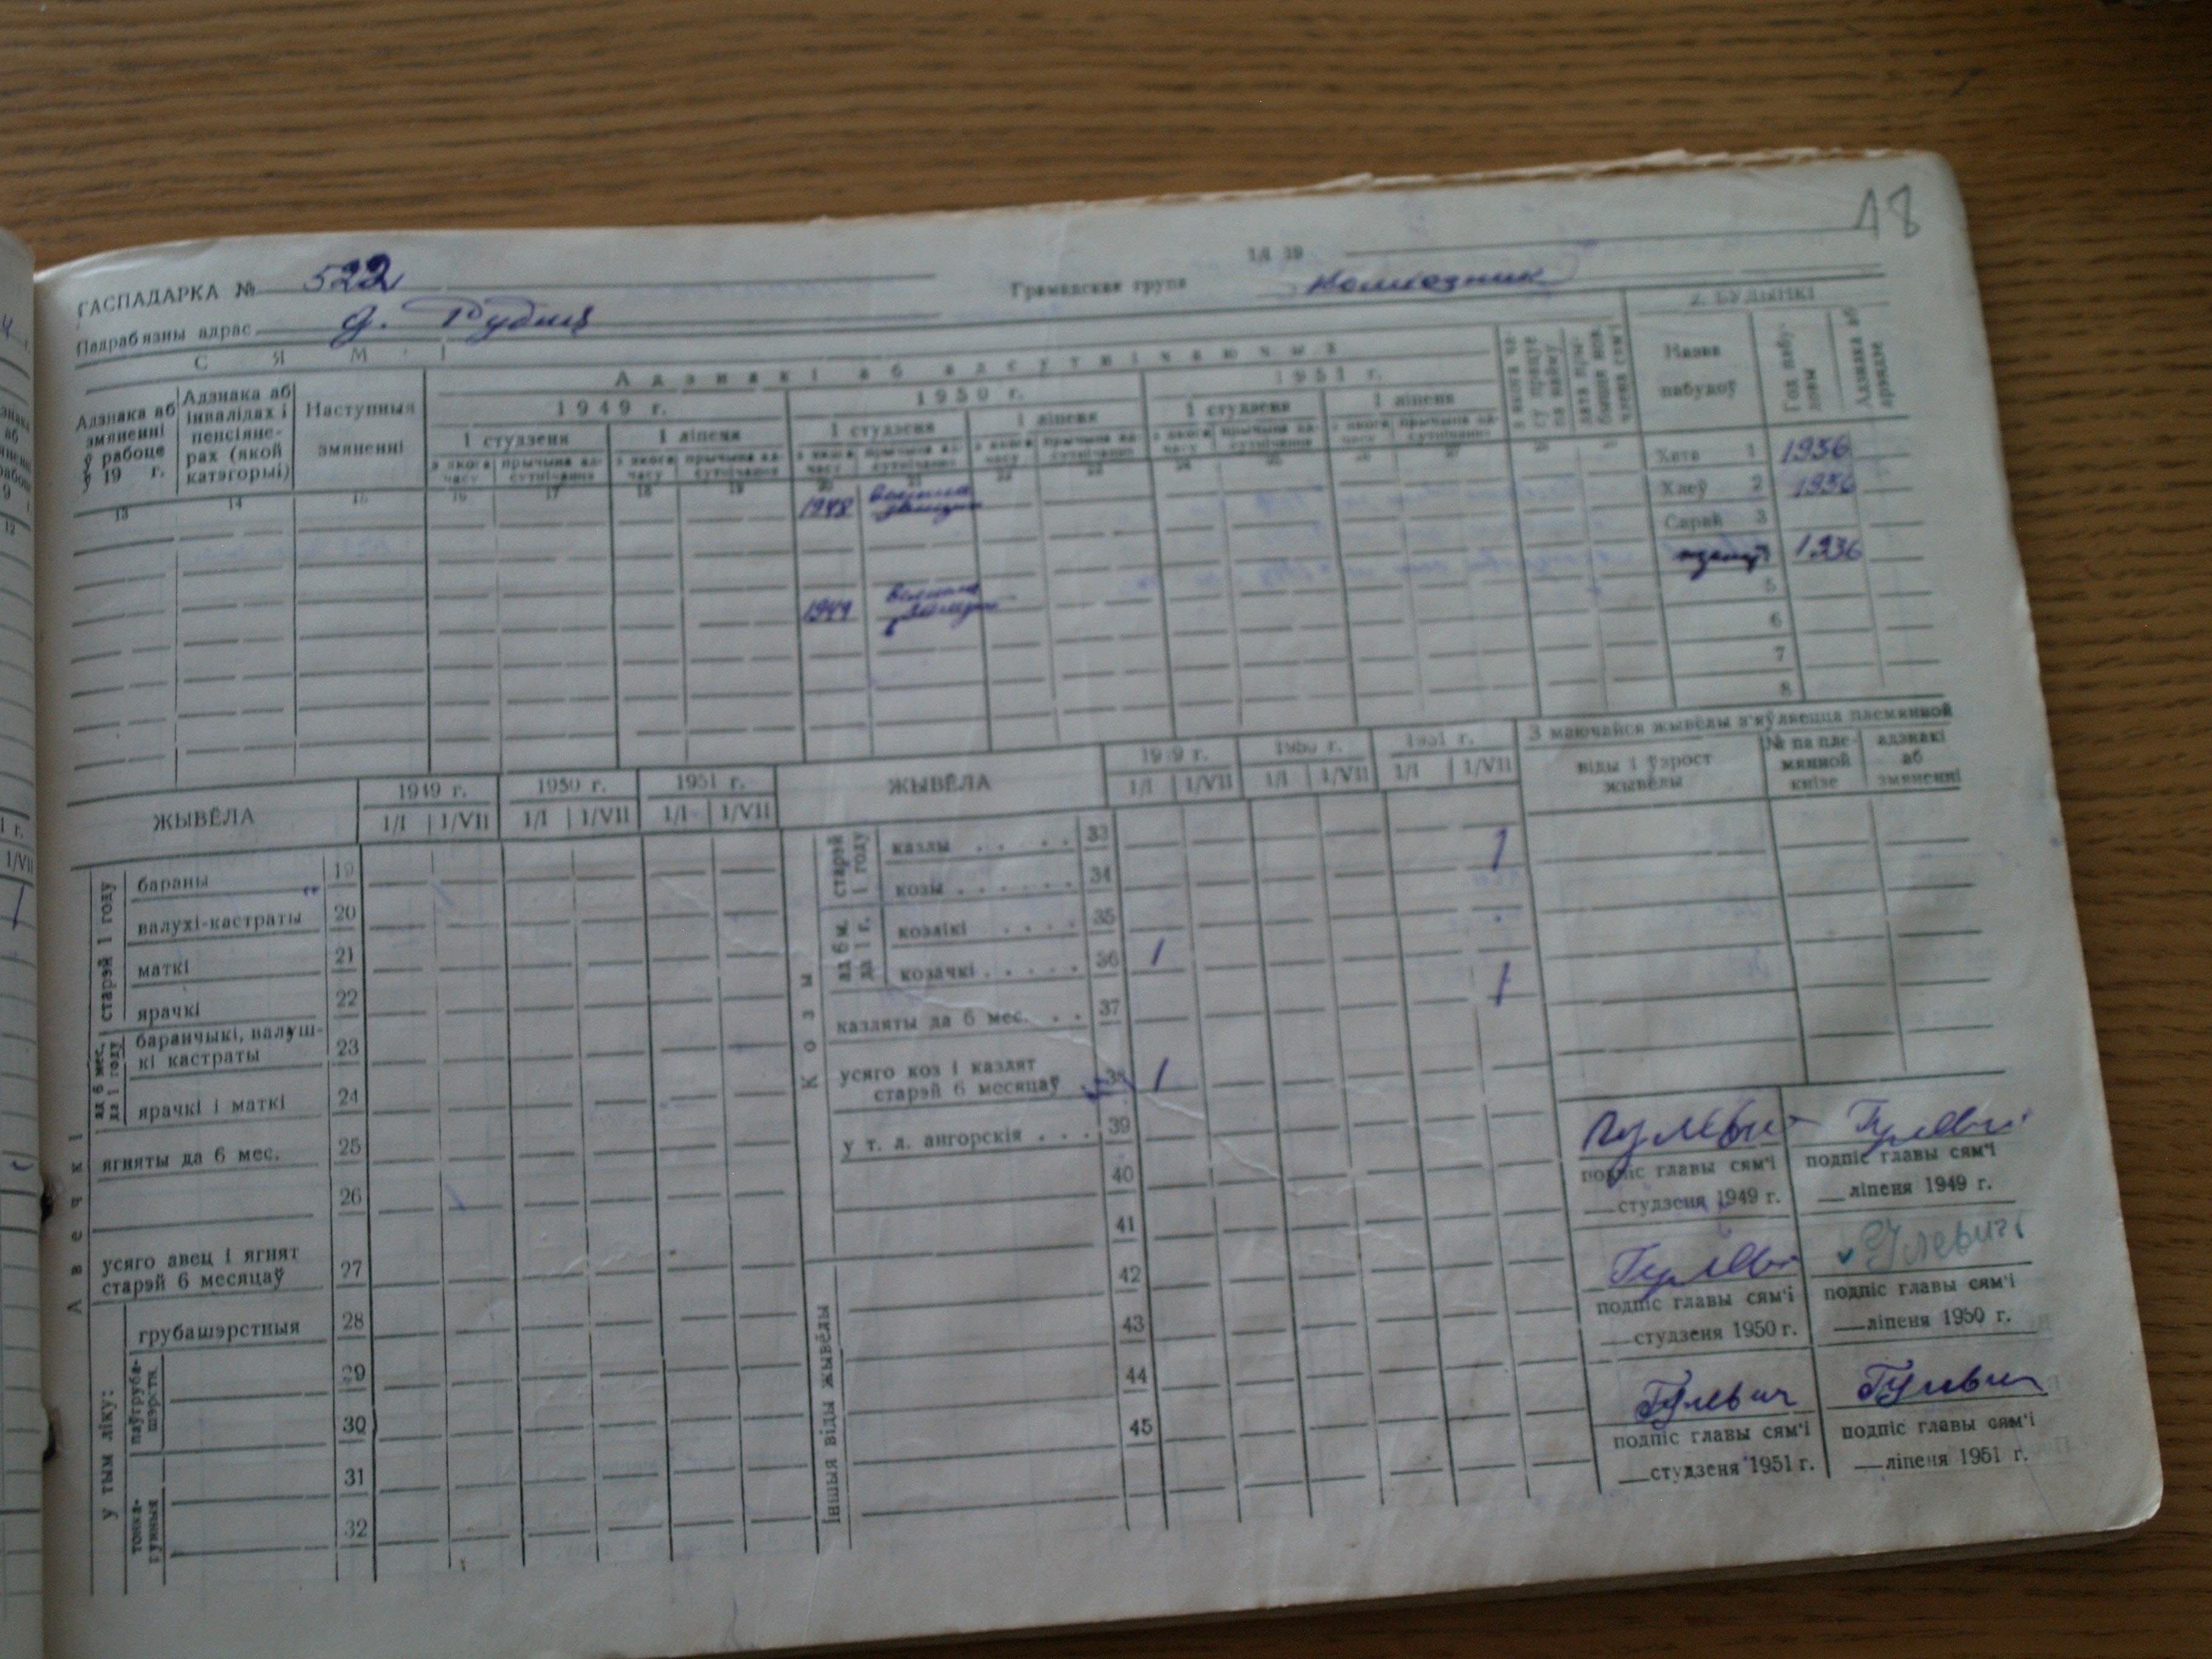 48
ГАСПАДАРКА № 522
Грамадская група колхозник
Падрабязны адрас д. Рудня
С Я М І
Адзнака аб змяненні ў рабоце ў 19 г.
Адзнака аб інвалідах і пенсіянерах (якой катэгорыі)
Наступныя змяненні
Адзнакі аб адсутнічаючых
1949 г.
1950 г.
1951 г.
1 студзеня
1 ліпеня
1 студзеня
1 ліпеня
1 студзеня
1 ліпеня
з якога часу
прычына адсутнічання
з якога часу
прычына адсутнічання
з якога часу
прычына адсутнічання
з якога часу
прычына адсутнічання
з якога часу
прычына адсутнічання
з якога часу
прычына адсутнічання
2. БУДЫНКІ
Назва пабудоў
Год пабудовы
Адзнака аб арэндзе
13 14 15 16 17 18 19 20 21 22 23 24 25 26 27
1948
1949
Хата 1 1936
Хлеў 2 1936
Сарай 3
1936
5
6
7
8
ЖЫВЁЛА
1949 г. 1950 г. 1951 г.
1/I 1/VII 1/I 1/VII 1/I 1/VII
Авечкі
старэй 1 году
бараны 19
валухі-кастраты 20
маткі 21
ярачкі 22
ад 6 мес. да 1 году
баранчыкі, валушкі кастраты 23
ярачкі і маткі 24
ягняты да 6 мес. 25
26
усяго авец і ягнят
старэй 6 месяцаў 27
у тым ліку:
грубашэрстныя 28
паўгрубашэрстн.
29
30
тонкарунныя
31
32
ЖЫВЁЛА
1949 г. 1950 г. 1951 г.
1/I 1/VII 1/I 1/VII 1/I 1/VII
Козы
старэй 1 году
казлы 33 1
козы 34
ад 6 м. да 1 г.
козлікі 35
козачкі 36 1
1
казляты да 6 мес. 37
усяго коз і казлят
старэй 6 месяцаў 38 1
у т. л. ангорскія 39
40
41
Іншыя віды жывёлы
42
43
44
45
З маючайся жывёлы з'яўляецца племянной
віды і ўзрост жывёлы
№ па племянной кнізе
адзнакі аб змяненні
Гулевич
подпіс главы сям'і
студзеня 1949 г.
Гулевич
подпіс главы сям'і
ліпеня 1949 г.
Гулевич
подпіс главы сям'і
студзеня 1950 г.
Гулевич
подпіс главы сям'і
ліпеня 1950 г.
Гулевич
подпіс главы сям'і
студзеня 1951 г.
Гулевич
подпіс главы сям'і
ліпеня 1951 г.